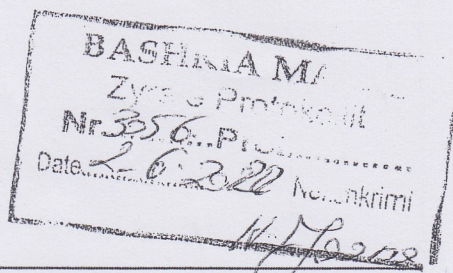 BASHKIA
Zyra e Protokollit
Nr. 3056 Prot.
Date 2.6.2022 Nënshkrimi